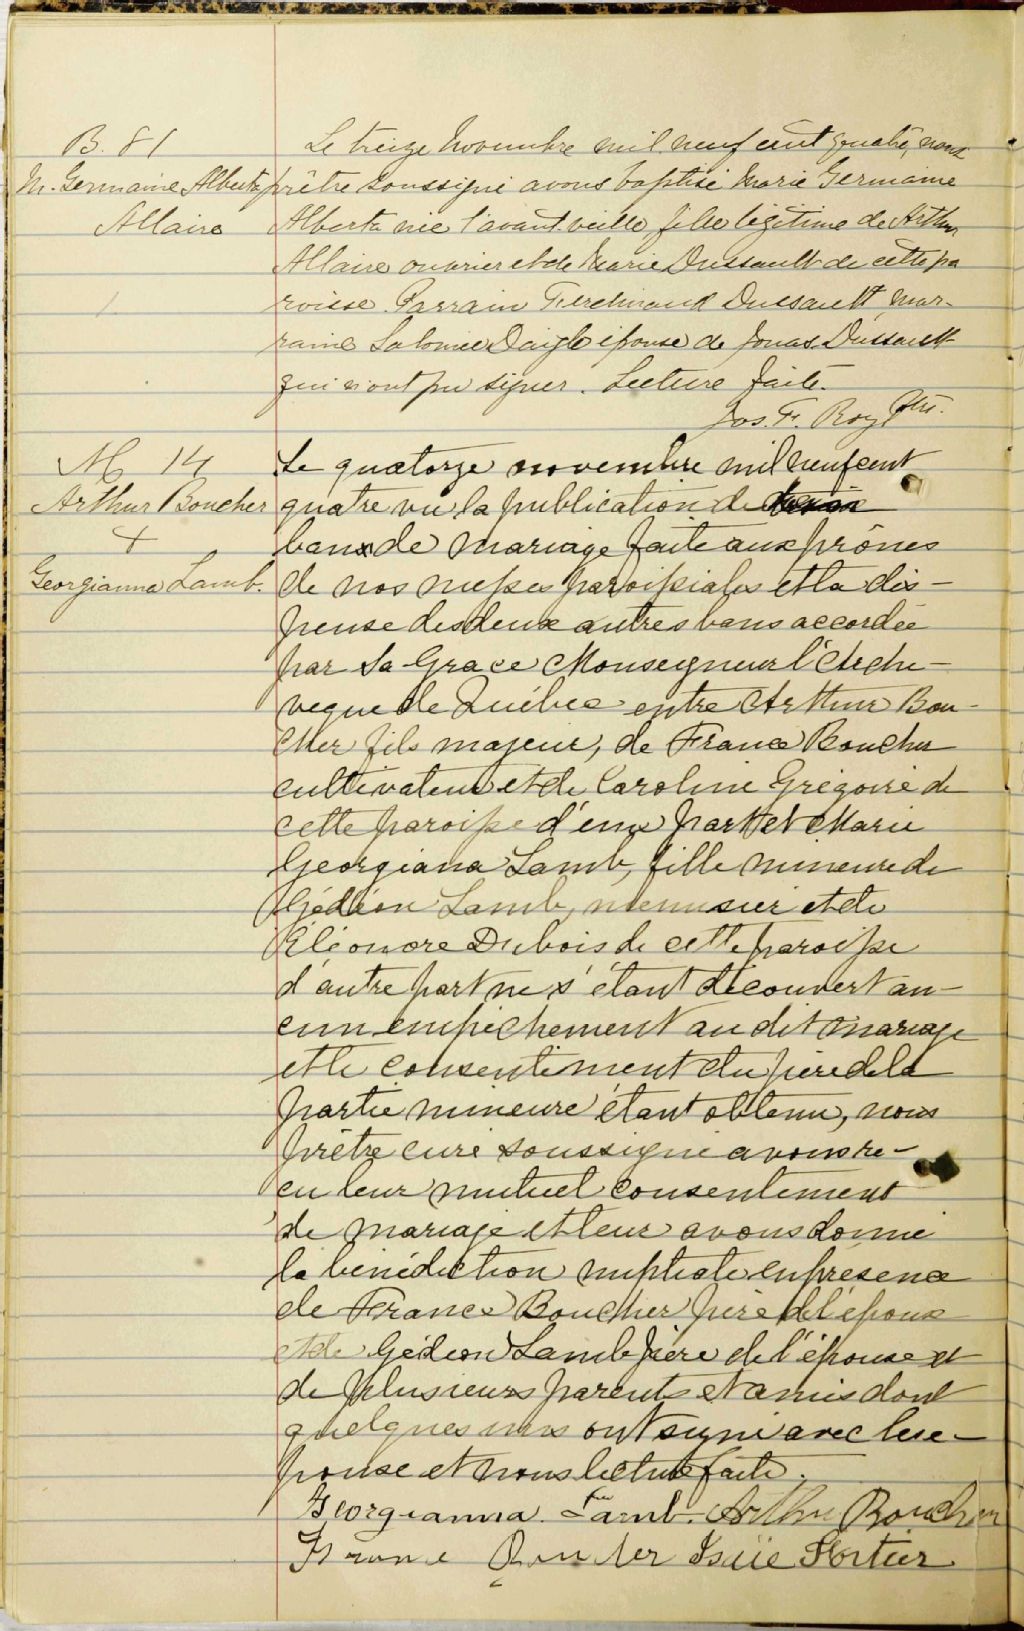 B. 81
M. Germaine Alberta
Allaire
Le treize Novembre mil neuf cent quatre, nous
prêtre soussigné avons baptisé Marie Germaine
Alberta née l'avant veille, fille légitime de Arthur
Allaire ouvrier et de Marie Dussault de cette pa
roisse. Parrain Ferdinand Dussault mar-
raine Salomée Daigle épouse de Jonas Dussault
qui n'ont pu signer. Lecture faite.
Jos. F. Roy Ptre.
M 14
Arthur Boucher
+
Georgianna Lamb.
Le quatorze novembre mil neuf cent
quatre vu la publication de
bans de mariage faite aux prônes
de nos messes paroissiales et la dis-
pense des deux autres bans accordée
par Sa Grace Monseigneur l'Arche-
veque de Québec entre Arthur Bou-
cher fils majeur, de France Boucher
cultivateur et de Caroline Grégoire de
cette paroisse d'une part et Marie
Georgiana Lamb, fille mineure de
Gédéon Lamb, menusier et de
Éléonore Dubois de cette paroisse
d'autre part ne s'étant découvert au-
cun empêchement au dit mariage
et le consentiment du père de la
partie mineure étant obtenu, nous
prêtre curé soussigné avons re-
cu leur mutuel consentement
de mariage et leur avons donné
la bénédiction nuptiale en présence
de France Boucher père de l'époux
et de Gédéon Lamb père de l'épouse et
de plusieurs parents et amis dont
quelques uns ont signé avec les é-
poux et nous lecture faite.
Georgianna Lamb. Arthur Boucher
France Boucher Isaïe Fortier